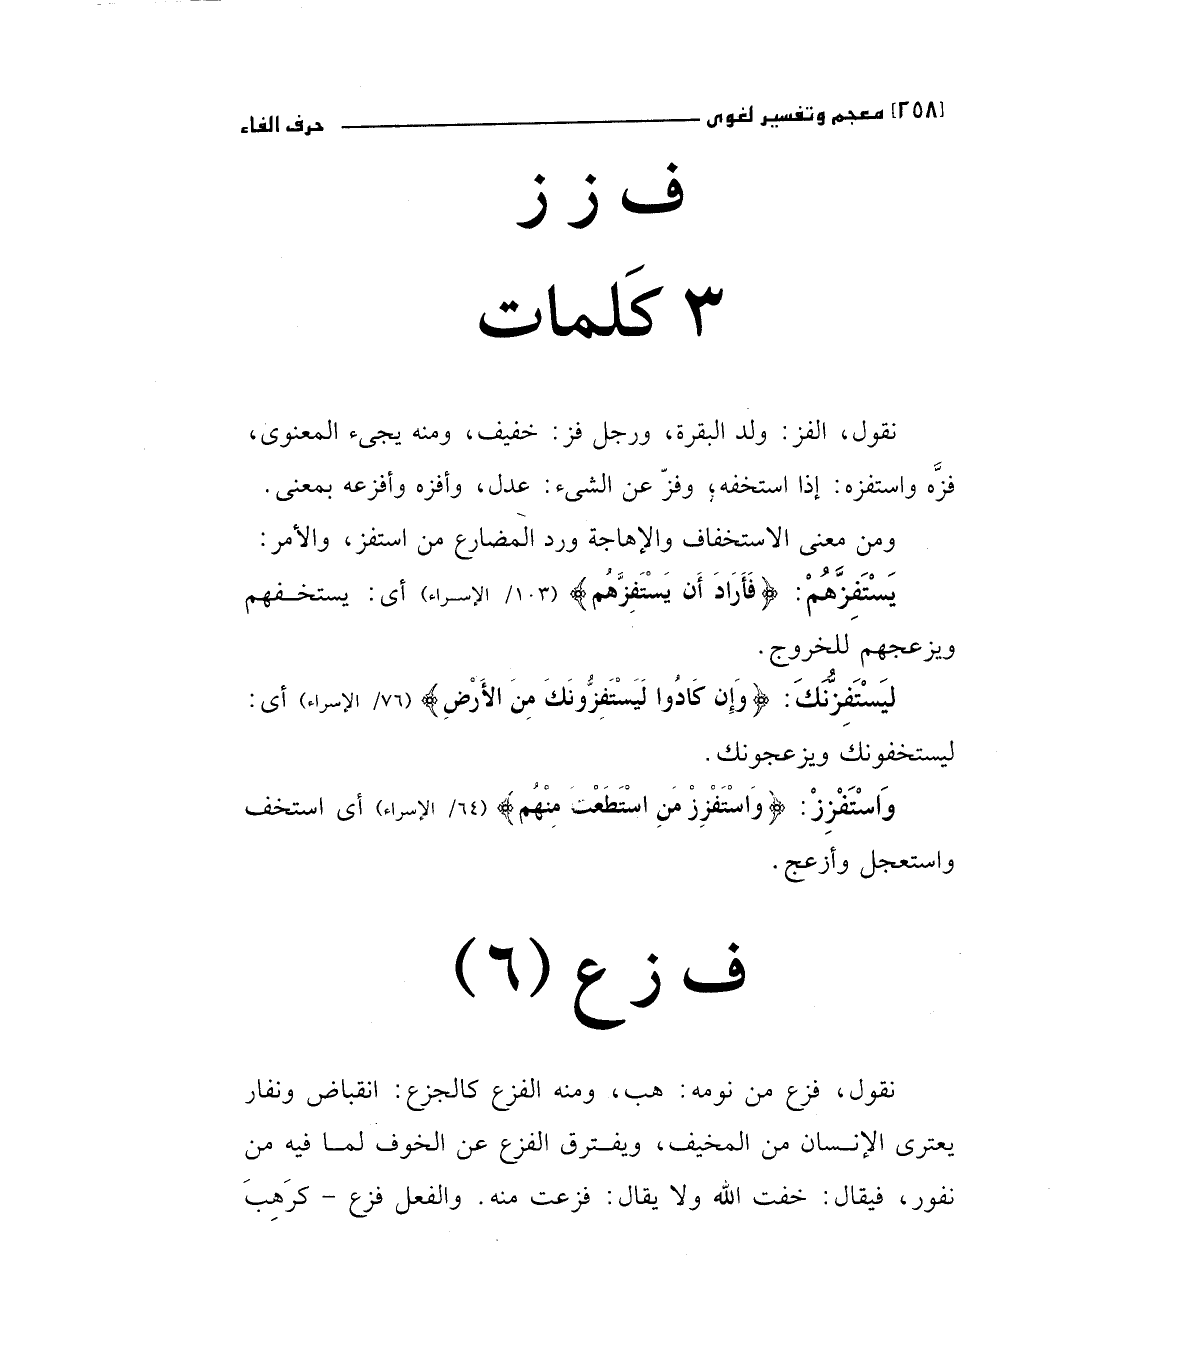 [٢٥٨] معجم وتفسير لغوى حرف الفاء
ف ز ز
٣ كَلمات
نقول، الفز: ولد البقرة، ورجل فز: خفيف، ومنه يجىء المعنوى،
فزَّه واستفزه: إذا استخفه؛ وفزّ عن الشىء: عدل، وأفزه وأفزعه بمعنى.
ومن معنى الاستخفاف والإهاجة ورد المضارع من استفز، والأمر:
يَسْتَفِزَّهُمْ: ﴿فَأَرَادَ أَن يَسْتَفِزَّهُم﴾ (١٠٣/ الإسراء) أى: يستخفهم
ويزعجهم للخروج.
ليَسْتَفِزُّنَكَ: ﴿وَإِن كَادُوا لَيَسْتَفِزُّونَكَ مِنَ الأَرْضِ﴾ (٧٦/ الإسراء) أى:
ليستخفونك ويزعجونك.
وَاسْتَفْزِزْ: ﴿وَاسْتَفْزِزْ مَنِ اسْتَطَعْتَ مِنْهُم﴾ (٦٤/ الإسراء) أى استخف
واستعجل وأزعج.
ف ز ع (٦)
نقول، فزع من نومه: هب، ومنه الفزع كالجزع: انقباض ونفار
يعترى الإنسان من المخيف، ويفترق الفزع عن الخوف لما فيه من
نفور، فيقال: خفت الله ولا يقال: فزعت منه. والفعل فزع - كرَهِبَ